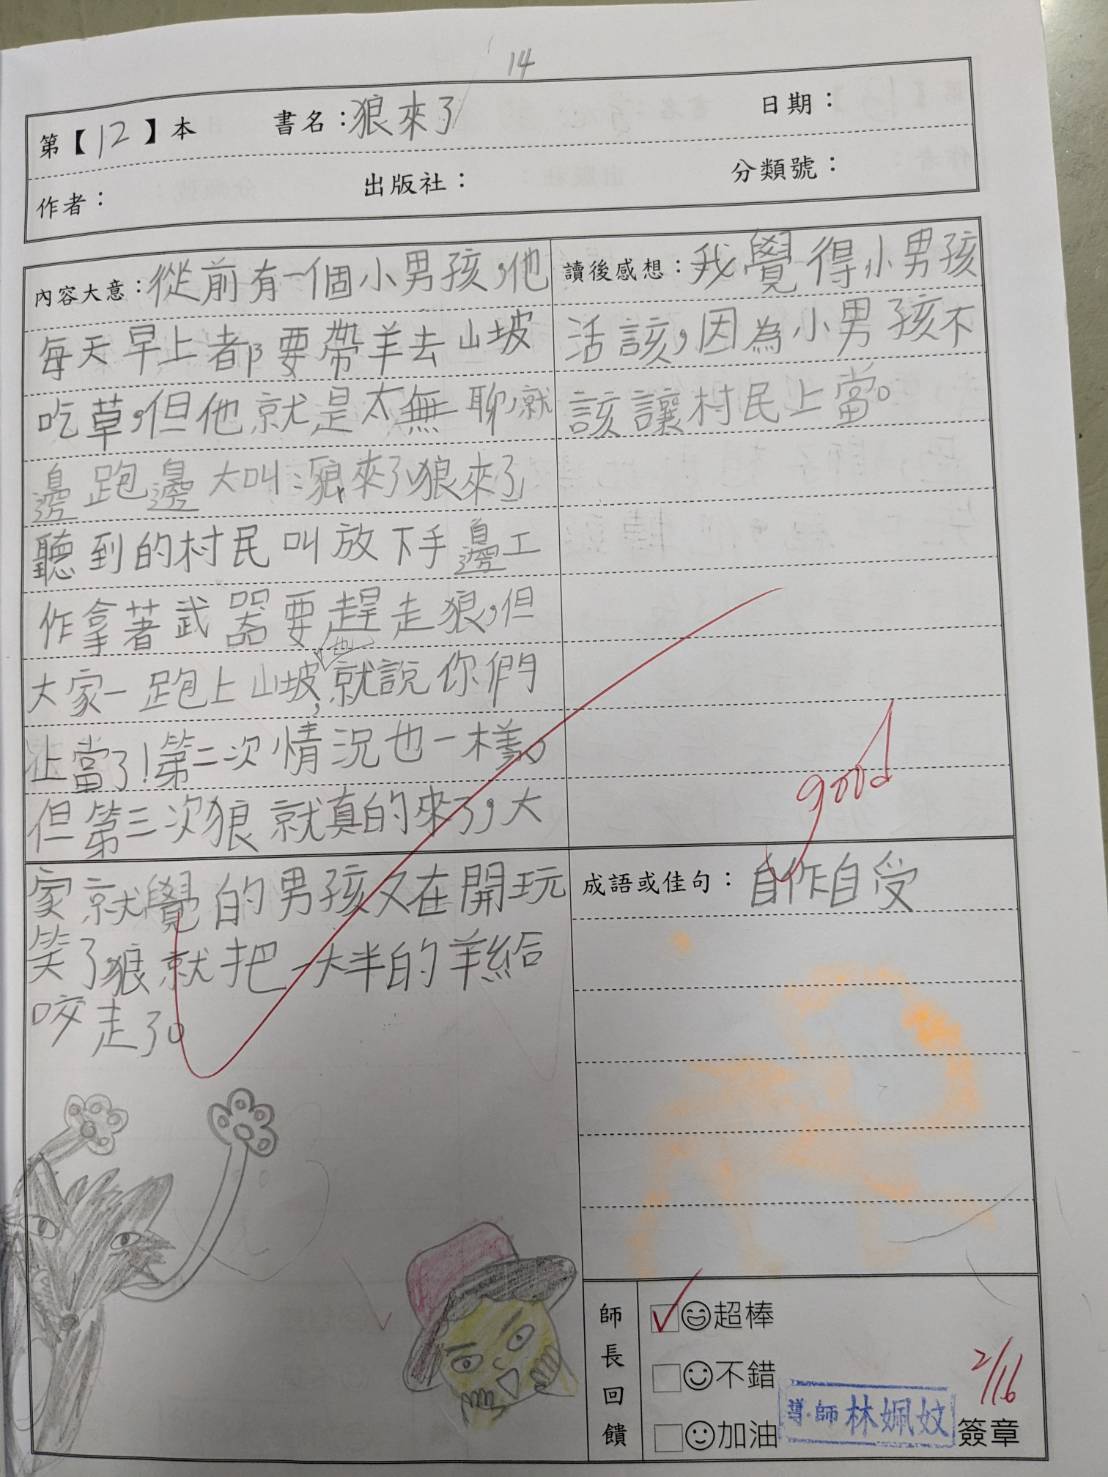 14
第【12】本 書名：狼來了 日期：
作者： 出版社： 分類號：
內容大意：從前有一個小男孩，他
每天早上都要帶羊去山坡
吃草，但他就是太無聊，就
邊跑邊大叫：狼來了狼來了
聽到的村民叫放下手邊工
作拿著武器要趕走狼，但
大家一跑上山坡，他就說你們
上當了！第二次情況也一樣。
但第三次狼就真的來了，大
家就覺的男孩又在開玩
笑了，狼就把一大半的羊給
咬走了。
讀後感想：我覺得小男孩
活該，因為小男孩不
該讓村民上當。
good
成語或佳句：自作自受
師長回饋
超棒
不錯
加油
2/16
導師 林姵妏 簽章